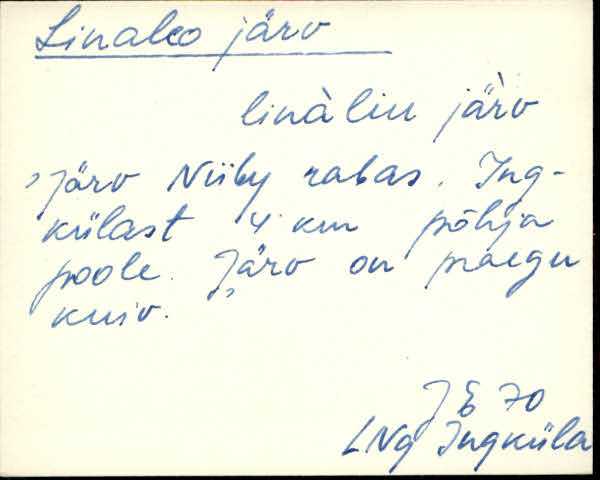 Linaleo järv
linàliu jä̀rv
Järv Niiby rabas. Ing-
külast 4 km põhja
poole. Järv on praegu
kuiv.
J E 70
LNg Ingküla